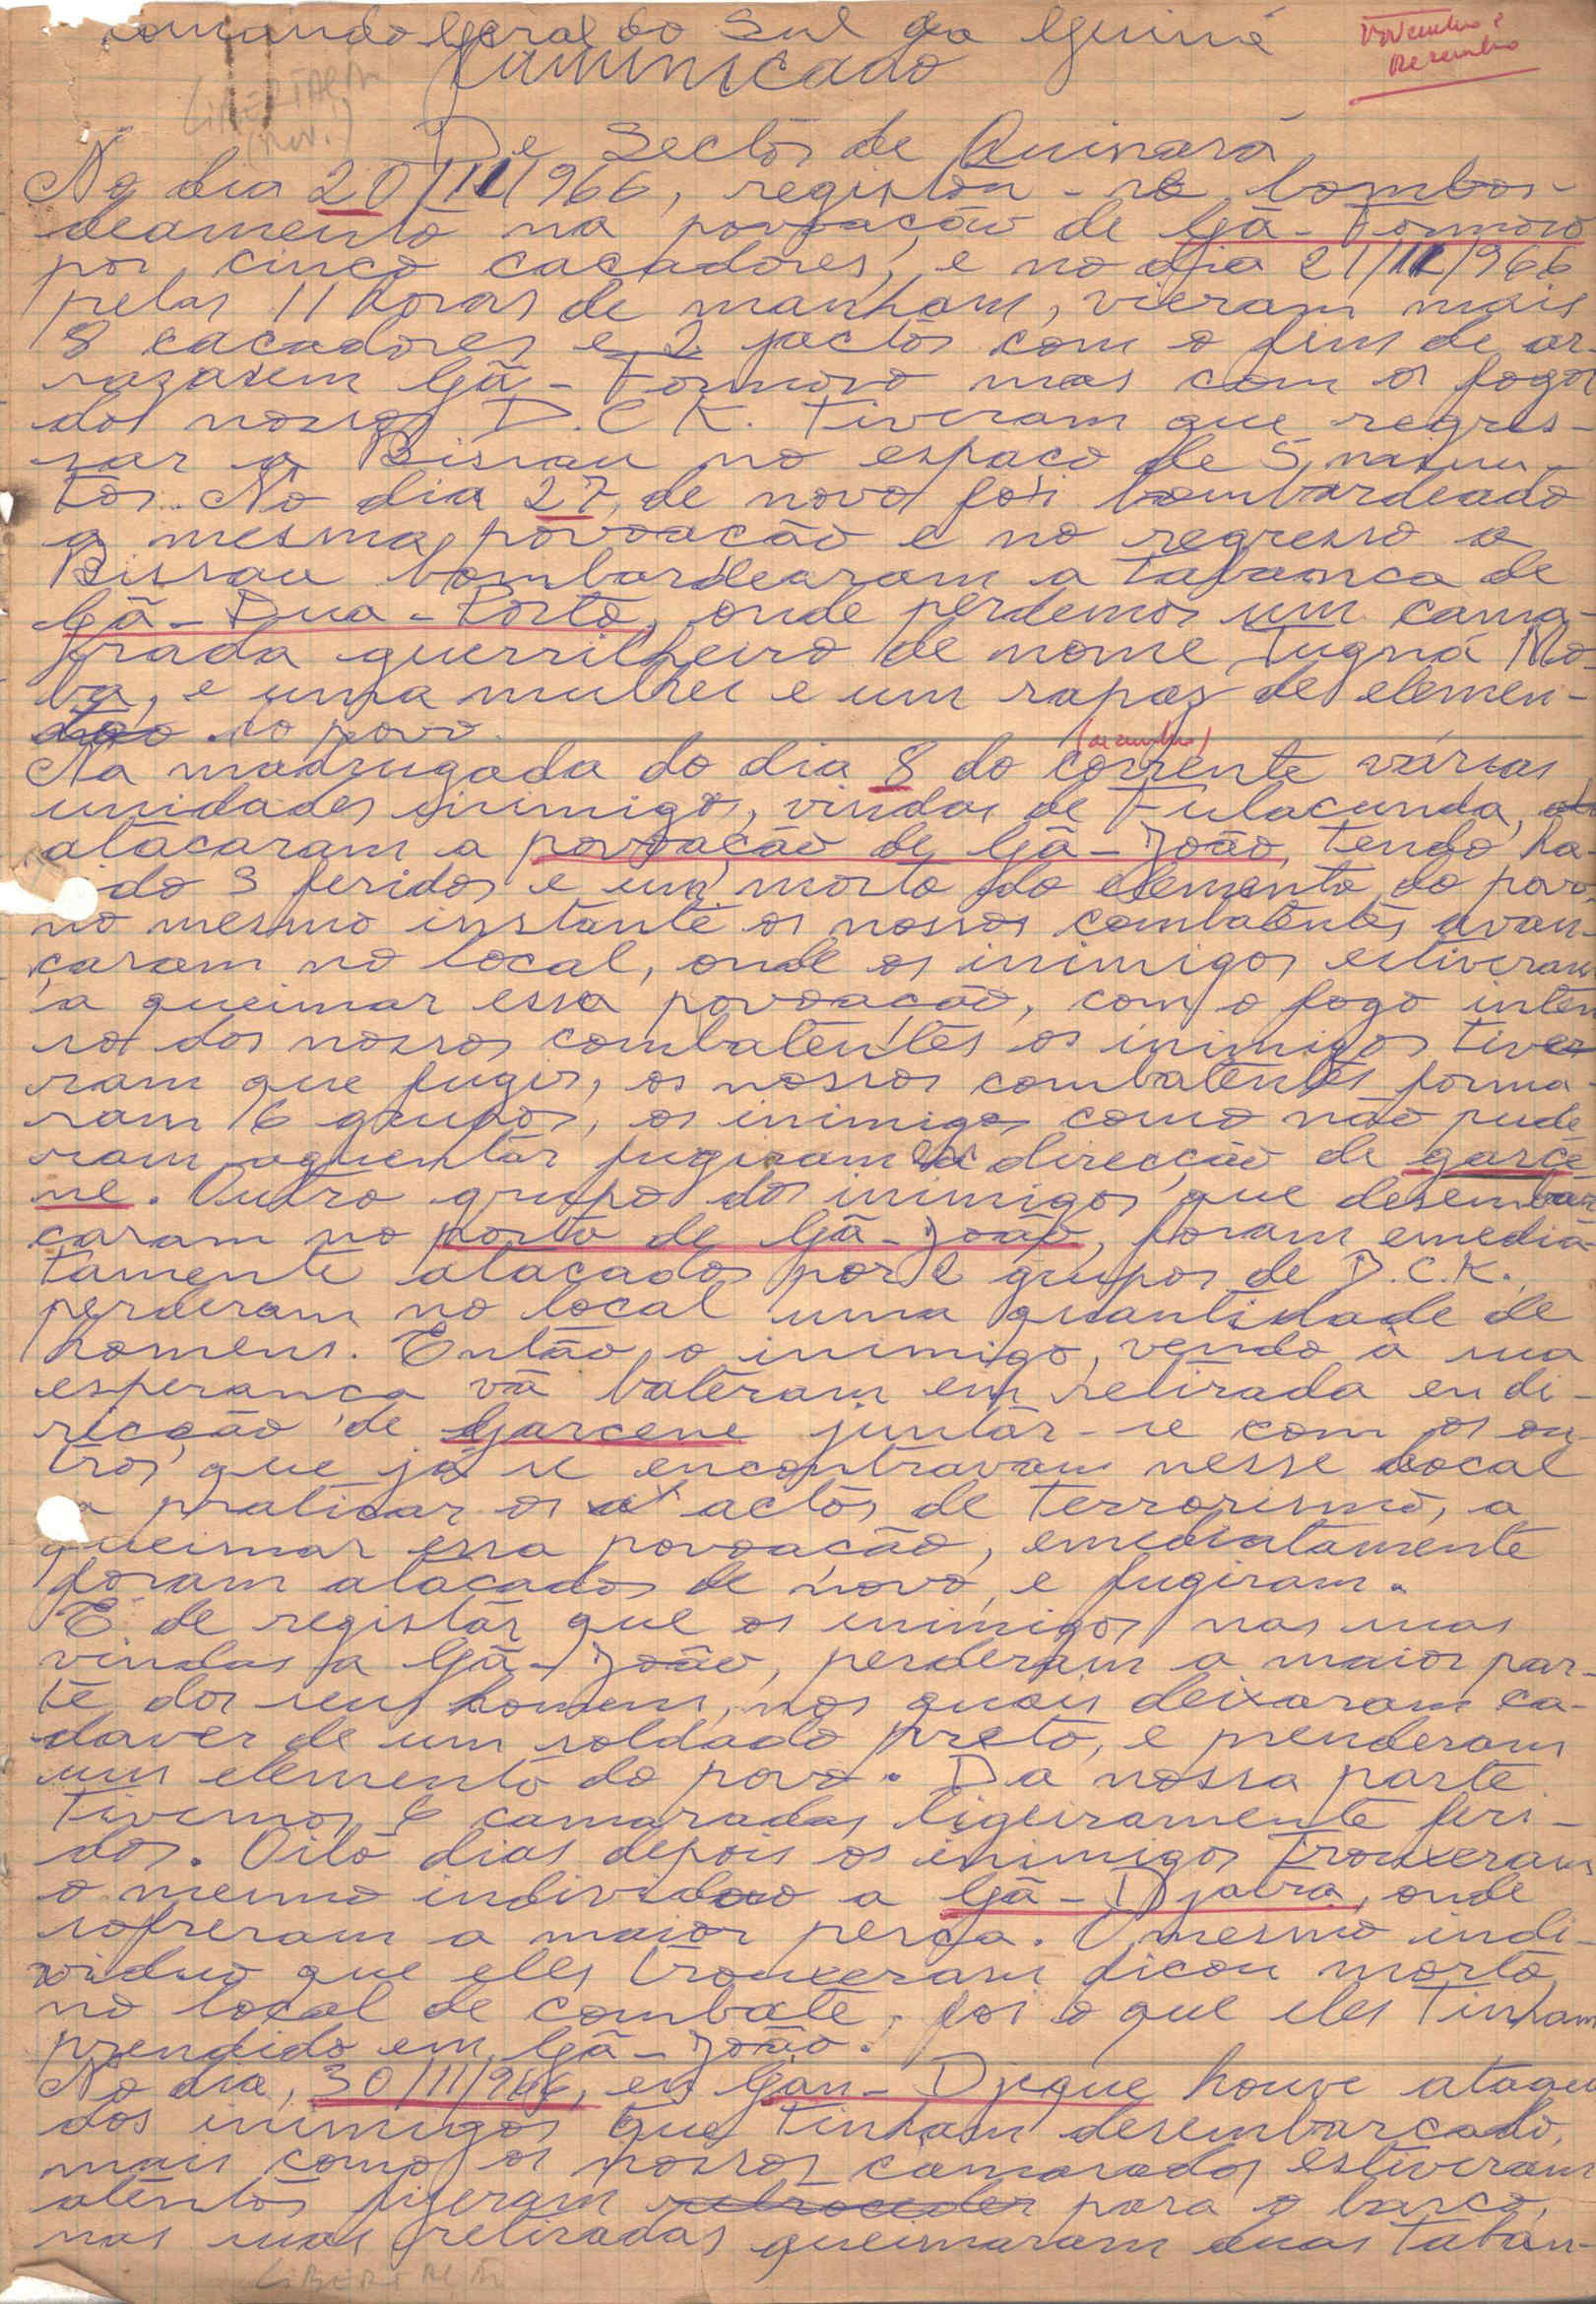 Comando Geral do Sul da Guiné
Novembro e
Dezembro
Comunicado
LIBERTAÇÃO
(Nov.)
De Sector de Quinará
No dia 20/11/1966, registou-se bombar-
deamento na povoação de Gã-Formoso
por, cinco caçadores, e no dia 21/11/1966
pelas 11 horas de manham, vieram mais
8 cacadores e 2 jactos com o fim de ar-
razarem Gã-Formoso mas com os fogos
dos nossos D.C.K. tiveram que regres-
sar a Bissau no espaco de 5 minu-
tos. No dia 27, de novo foi bombardeado
a mesma povoacão e no regresso a
Bissau bombardearam a tabanca de
Gã-Dua-Porto, onde perdemos um cama-
rada guerrilheiro de nome Tugná Mo-
ba, e uma mulher e um rapaz de elemen-
do povo.
(dezembro)
Na madrugada do dia 8 do corrente várias
unidades inimigos, vindas de Fulacunda,
atacaram a povoação de Gã-João, tendo ha-
ido 3 feridos e um morto do elemento do povo,
no mesmo instante os nossos combatentes avan-
çaram no local, onde os inimigos estiveram
a queimar essa povoação, com o fogo inten
so dos nossos combatentes os inimigos tive
ram que fugir, os nossos combatentes forma
ram 6 grupos, os inimigos como não pude
ram aguentar fugiram em direcção de garce
ne. Outro grupo dos inimigos que desembar
caram no porto de Gã-João, foram emedia-
tamente atacados por 2 grupos de D.C.K.,
perderam no local uma quantidade de
homens. Então o inimigo, vendo à sua
esperança vã bateram em retirada en di-
recção de Garcene juntar-se com os ou-
tros que já se encontravam nesse local
a praticar os actos de terrorismo, a
queimar essa povoacão, emediatamente
foram atacados de novo, e fugiram.
É de registar que os inimigos nas suas
vindas a Gã-João, perderam a maior par-
te dos seus homens, nos quais deixaram ca-
daver de um soldado preto, e prenderam
um elemento do povo. Da nossa parte
tivemos 6 camaradas ligeiramente feri-
dos. Oito dias depois os inimigos trouxeram
o mesmo individuo a Gã-Djabra, onde
sofreram a maior perca. O mesmo indi-
viduo que eles trouxeram ficou morto
no local de combate, foi o que eles tinham
prendido em Gã-João.
No dia, 30/11/966, en Gan-Djegue houve ataque
dos inimigos que tinham desembarcado,
mais como os nossos camarados estiveram
atentos fizeram retroceder para o barco,
nas suas retiradas queimaram duas taban-
LIBERTAÇÃO